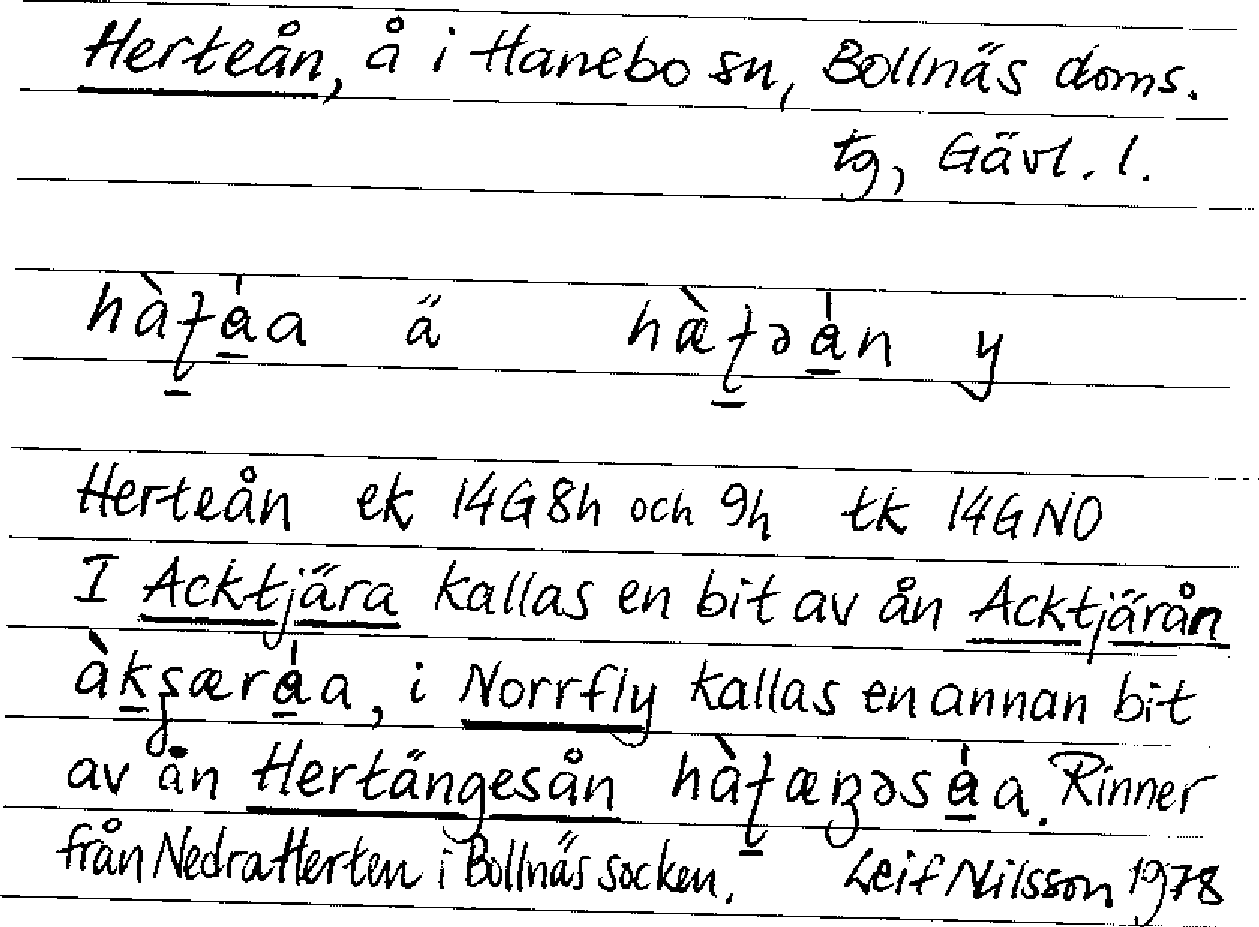 Herteån, å i Hanebo sn, Bollnäs doms.
tg, Gävl. l.
ä y
Herteån ek 14G8h och 9h tk 14GNO
I Acktjära kallas en bit av ån Acktjärån
i Norrfly kallas en annan bit
av ån Hertängesån Rinner
från Nedra Herten i Bollnäs socken. Leif Nilsson 1978